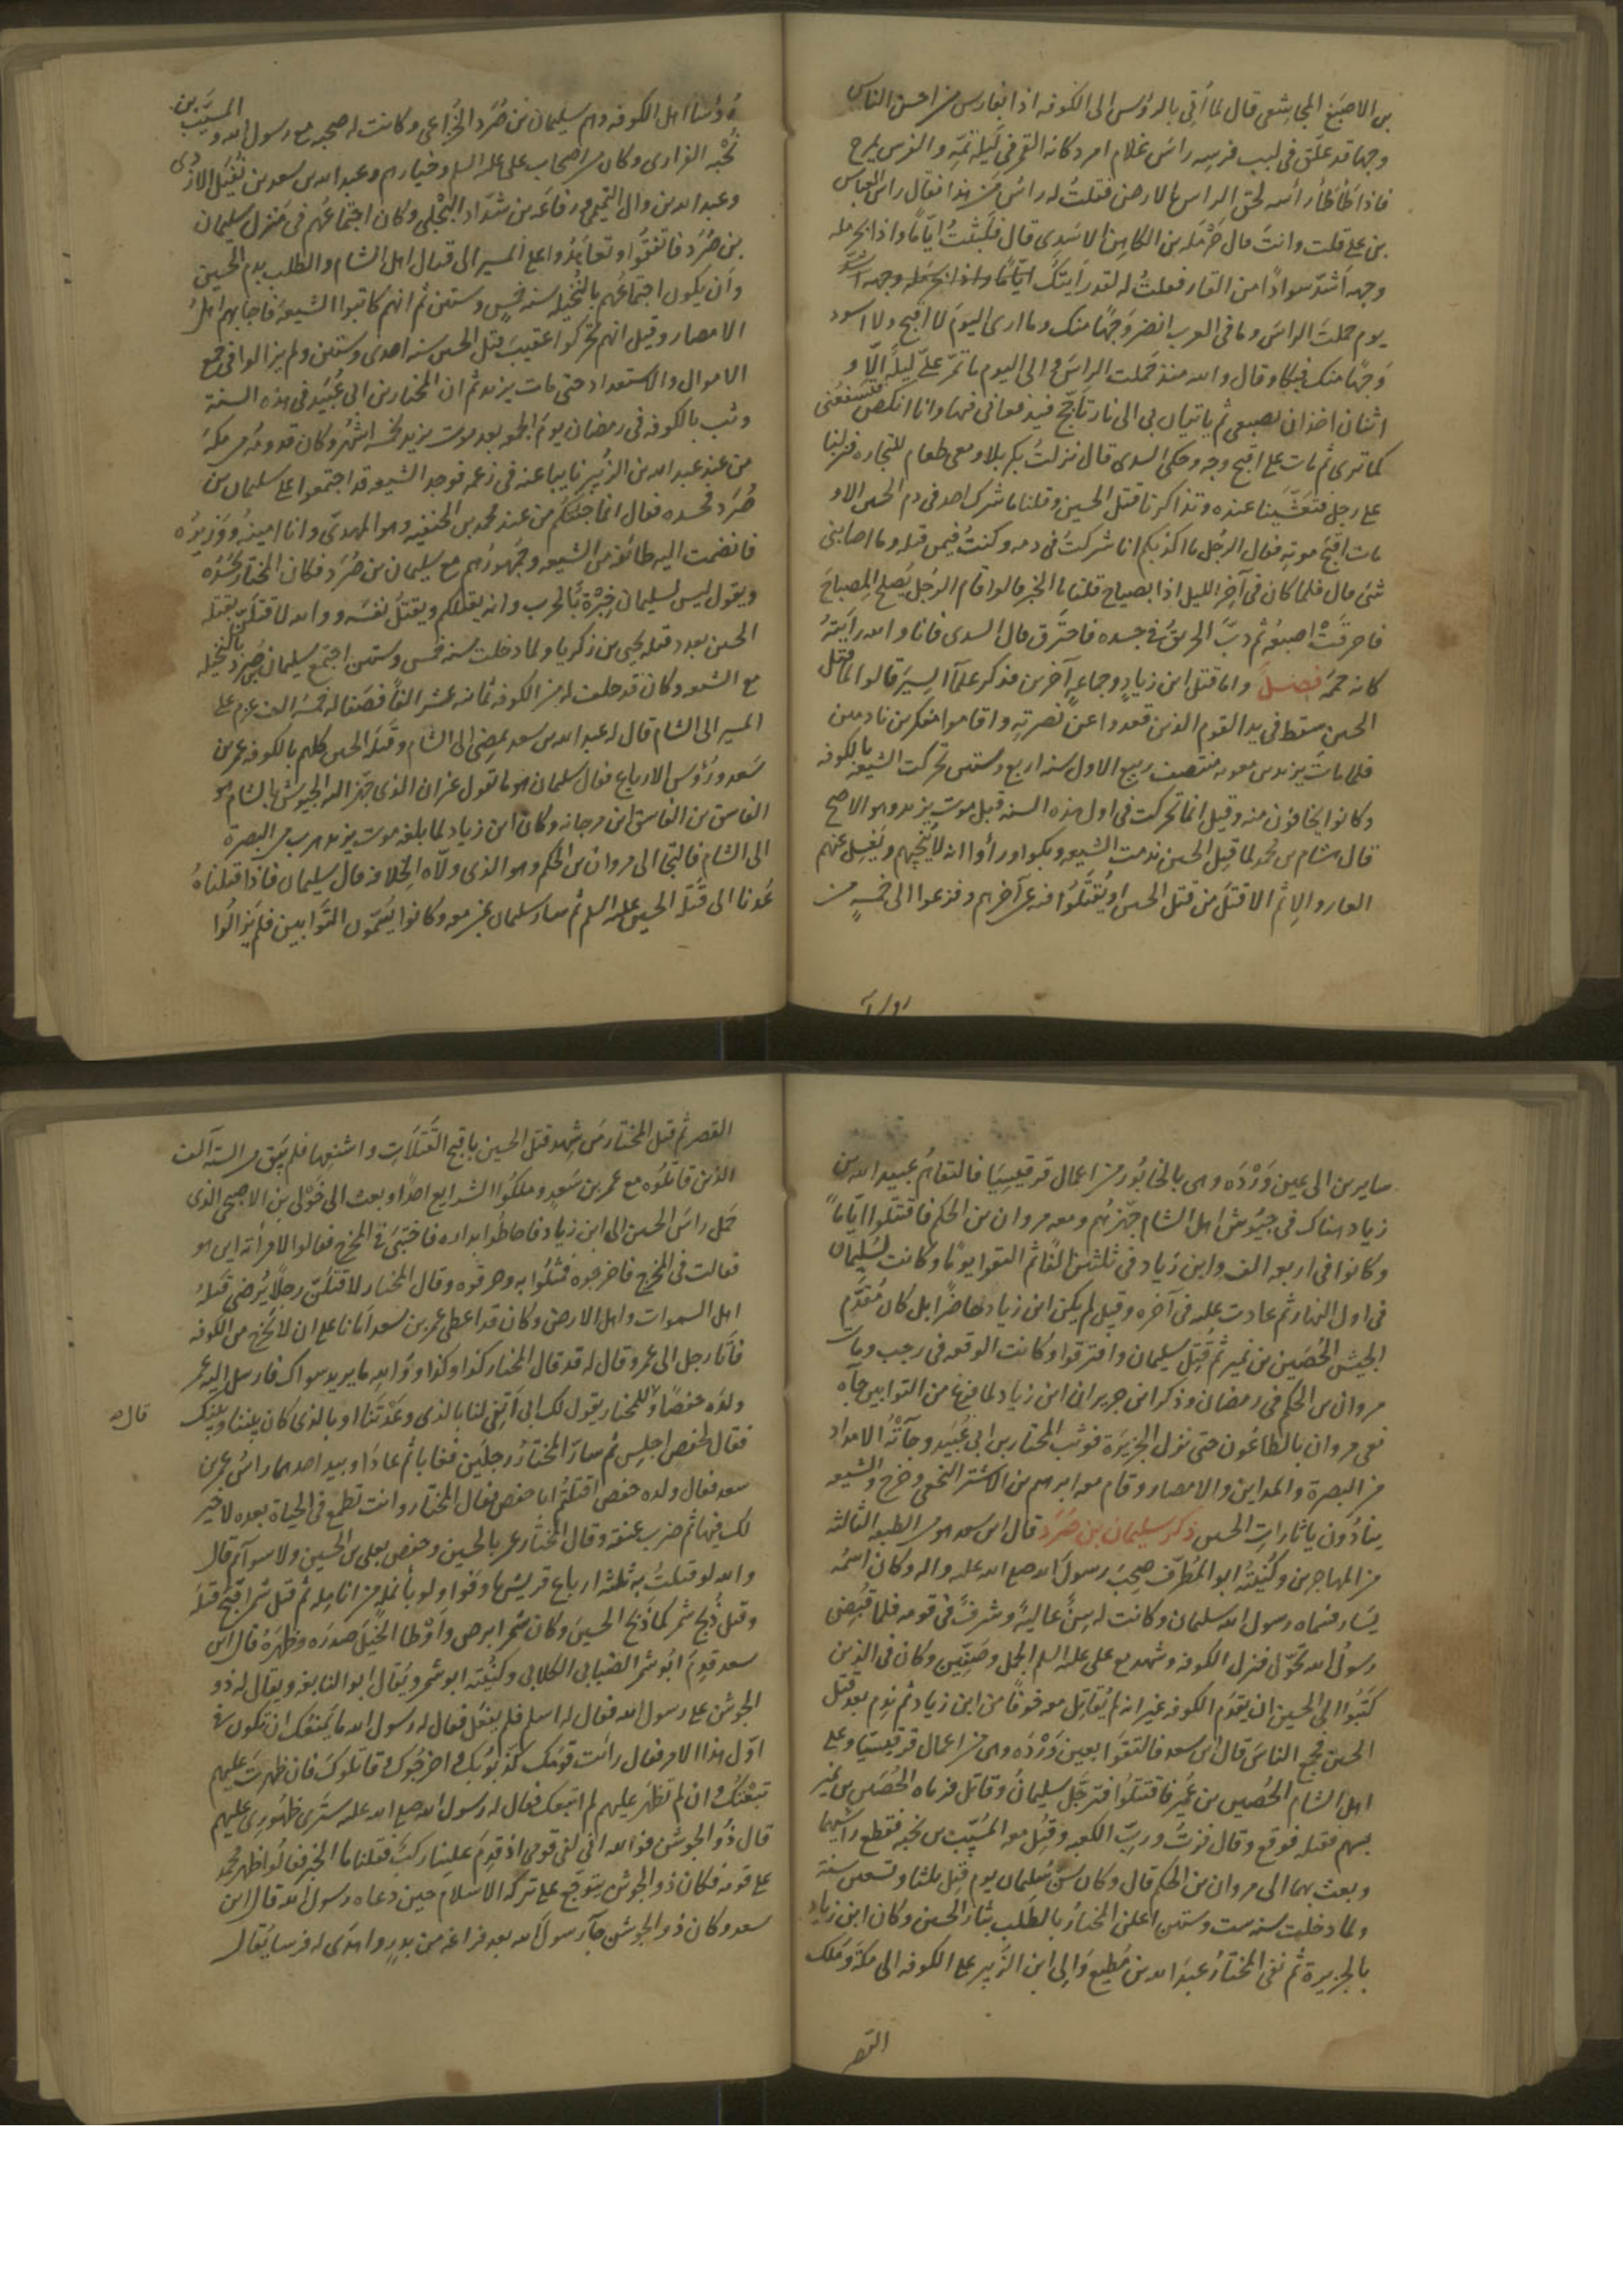 بن الاصبغ المجاشعى قال لما أتى بالرؤس الى الكوفه اذا بفارس من احسن الناس
وجها قد علّق فى لبب فرسه راس غلام امرد كانه القمر فى ليلة تمّه والفرس يمرح
فاذا طأطأ رأسه لحق الراس بالارض فقلتُ له راسُ مَن هذا فقال راس العباس
بن على قلت وانتَ قال حَرْمَله بن الكاهن الاسدى قال فلبثتُ ايّامًا واذا بحرمله
وجهه اشدّ سوادًا من القار فقلتُ له لقد رأيتك
يوم حملتَ الراسَ وما فى العرب انضر وَجهًا منك وما ارى اليومَ لا اقبح ولا اسود
وَجهًا منك فبكا وقال والله منذ حَملت الراسَ والى اليوم ما تمرّ علىّ ليلةٌ الّا و
اثنان ياخذان بضبعى ثم ياتيان بى الى نار تأجّج فيدفعانى فيها وانا انكص فتسفعنى
كما ترى ثم مات على اقبح وجه وحكى السدى قال نزلتُ بكربلا ومعى طعام للتجاره فنزلنا
على رجل فتعشّينا عنده وتذاكرنا قتل الحسين وقلنا ما شرك احد فى دم الحسين الا و
مات اقبحَ موتهٍ فقال الرجل ما اكذبكم انا شركتُ فى دمه وكنتُ فيمن قتله وما اصابنى
شئ قال فلما كان فى آخر الليل اذا بصياح قلنا ما الخبر قالوا قام الرجل يُصلح المصباحَ
فاحرقَتْ اصبعُه ثم دبَّ الحريقُ فى جسده فاحترق قال السدى فانا والله رايتهُ
كانه حممة فصل واما قتل ابن زيادٍ وجماعهٍ آخرين فذكر علمآ السِيَر قالوا لما قتل
الحسين سقط فى يد القوم الذين قعدوا عن نصرته واقاموا متفكرين نادمين
فلما مات يزيد بن معويه منتصف ربيع الاول سنه اربع وستين تحركت الشيعه بالكوفه
وكانوا يخافون منه وقيل انما تحركت فى اول هذه السنه قبل موت يزيد وهو الاصح
قال هشام بن محمد لما قتل الحسين ندمت الشيعه وبكوا ورأوا انه لا يُنجيهم ويَغسِل عنهم
العار والاِثم الا قتلُ من قتل الحسين او يُقتَلُوا فيه عن آخرهم وفزعوا الى خمسه من
رؤسآ
رُؤسآ اهل الكوفه وهم سليمان بن صُرَد الخُزاعى وكانت له صحبه مع رسول الله والمسيّب بن
نُجْبه الفزارى وكان من اصحاب على عليه السلم وخيارهم وعبد الله بن سعد بن نُفَيل الازدى
وعبد الله بن وال التيمى ورفاعَه بن شدّاد البَجْلى وكان اجتماعُهم فى منزل سليمان
بن صُرَد فاتفقُوا وتعاهَدُوا على المسير الى قتال اهل الشام والطلب بدم الحسين
وان يكون اجتماعُهم بالنُخيله سنه خمس وستين ثم انهم كاتبوا الشيعهَ فاجابهم اهلُ
الامصار وقيل انهم تحركوا عقيبَ قتل الحسين سنه احدى وستين ولم يزالوا فى جمع
الاموال والاستعداد حتى مات يزيد ثم ان المختار بن ابى عُبَيد فى هذه السنة
وثب بالكوفه فى رمضان يومَ الجمعه بعد موت يزيد بخمسه اشهُر وكان قدومُه من مكة
من عند عبد الله بن الزُبير نايبا عنه فى زعمه فوجد الشيعه قد اجتمعوا على سليمان بن
صُرَد فحسده فقال انما جئتكم من عند محمد بن الحنفيه وهو المهدىّ وانا امينُه ووَزيرُه
فانضمت اليه طائفه من الشيعه وجُمهورُهم مع سليمان بن صُرَد فكان المختار يَحسُدُه
ويقول ليس لسليمان خِبْرَة بالحرب وانه يقتلكم ويقتلُ نفسَه ووالله لاقتلنّ بقتله
الحسين بعدد قتله يحيى بن زكريا ولما دخلت سنه خمس وستين اجتمع سليمان بن صرد بالنخيله
مع الشيعه وكان قد حلف له من الكوفه ثمانيه عشر الفًا فصَفا له خمسَه الف عزم على
المسير الى الشام قال له عبد الله بن سعد نمضى الى الشام وقتلة الحسين كلهم بالكوفه عمر بن
سَعد ورؤس الارباع فقال سليمان هو ما تقول غير ان الذى جهّز اليه الجيوش بالشام هو
الفاسق بن الفاسق ابن مرجانه وكان ابن زياد لما بلغه موت يزيد هرب من البصرة
الى الشام فالتجا الى مروان بن الحكم وهو الذى ولّاه الخلافه قال سليمان فاذا قتلناهُ
عُدنا الى قَتَله الحسين عليه السلم ثم سار سليمان بمن معه وكانوا يُسَمّون التوّابين فلم يزالُوا
سايرين الى عين وَرْدَه وهى بالخابُور من اعمال قرقيسيَا فالتقاهُم عبيد الله بن
زياد هناك فى جيُوش اهل الشام جهّزهُم ومعه مروان بن الحكم فاقتتلوا ايّامًا
وكانوا فى اربعه الف وابن زياد فى ثلثين الفًا ثم التقوا يومًا وكانت لسُليمان
فى اول النهار ثم عادت عليه فى آخره وقيل لم يكن ابن زياد حاضرًا بل كان مُقدَّم
الجيش الحُصَين بن نمير ثم قُتِل سليمان وافترقوا وكانت الوقعه فى رجب ومات
مروان بن الحكم فى رمضان وذكر ابن جرير ان ابن زياد لما فرغ من التوابين جآه
نعى مروان بالطاعُون حتى نزل الجزيرَة فوثب المختار بن ابى عُبَيد وجآتْهُ الامداد
من البصرة والمداين والامصار وقام معه ابرهيم بن الاشتر النخعى وخرج والشيعه
ينادُون يا ثارات الحسين ذكر سليمان بن صُرَد قال ابن سعد هو من الطبقه الثالثه
من المهاجرين وكُنيته ابو المُطرِّف صحبَ رسولَ الله صلى الله عليه واله وكان اسمُه
يَسار فسماه رسول الله سليمان وكانت له سِنٌّ عاليهٌ وشرفٌ فى قومه فلما قبض
رسولُ الله تحوّل فنزل الكوفه وشهد مع على عليه السلم الجمل وصِفّين وكان فى الذين
كَتَبُوا الى الحسين ان يقدَم الكوفه غير انه لم يُقاتِل معه خوفًا من ابن زياد ثم ندِم بعد قتل
الحسين فجمع الناسَ قال ابن سعد فالتقَوا بعين وَرْدَه وهى من اعمال قرقيسيَا وعلى
اهل الشام الحُصين بن نمير فاقتتلُوا فترجَّل سليمانُ وقاتل فرماه الحُصَين بن نمير
بسهم فقتله فوقع وقال فزتُ وربّ الكعبه وقُتِل معه المُسيَّب بن نجبه فقطع راسَيهما
وبعث بهما الى مروان بن الحكم قال وكان سنّ سُليمان يوم قُتِل ثلثا وتسعين سنة
ولما دخلت سنه ست وستين اعلن المختارُ بالطلَب بثار الحسين وكان ابن زياد
بالجزيرة ثم نفى المختارُ عبدَ الله بن مُطيع وَالى ابن الزُبير على الكوفه الى مكةَ وملك
القصر
القصر ثم قتل المختار مَن شهد قتل الحسين باقبح القَتَلَات واشنعِها فلم يَبق من الستة آلف
الذين قاتلُوه مع عمر بن سَعدٍ وملكُوا الشرايع احدًا وبعث الى خَوْلى بن الاصبحى الذى
حَمل راسَ الحسين الى ابن زياد فاحاطُوا بداره فاختبَى فى المخرج فقالوا لامرأته اين هو
فقالت فى المخرج فاخرجوه فمثلُوا به وحرقوه وقال المختار لاقتلَنّ رجلًا يُرضى قتلُه
اهل السموات واهل الارض وكان قد اعطى عمر بن سعد امانا على ان لا يَخرج من الكوفه
فاتا رجل الى عمر وقال له قد قال المختار كذا وكذا ووالله ما يريد سواك فارسل اليه عمر
ولدَه حفصًا وللمختار يقول لك ابى أتفِى لنا بالذى وعَدْتَنا او بالذى كان بيننا وبينك قال
فقال لحفصٍ اجلِس ثم سارّ المختارُ رجلَين فغابا ثم عادَا وبيد احدهما راسُ عمر بن
سعد فقال ولده حفص اقتلتُم ابا حفص فقال المختار وانت تطمع فى الحياة بعده لا خير
لك فيها ثم ضرب عنقَه وقال المختار عمر بالحسين وحفص بعلى بن الحسين ولا سوآء ثم قال
والله لو قتلتُ به ثلثه ارباع قريش ما وفَوا ولو بأنمله من انامله ثم قتل شمر اقبحَ قتلَه
وقيل ذُبِح شمر كما ذَبح الحسينَ وكان شمر ابرص واَوْطا الخيلَ صدرَه وظهرَهُ قال ابن
سعد قدِمَ ابُو شمر الضِبابى الكلابى وكنْيته ابو شمر ويُقال ابو النابغه ويقال له ذو
الجوشن على رسول الله فقال له اسلِم فلم يفعَل فقال له رسول الله ما يمنعُك ان تكون فى
اوّل هذا الامر فقال رايت قَومك كذّبُوكَ واخرجُوك وقاتلُوكَ فان ظهرتَ عليهم
تبعْتكُ وان لم تظهر عليهم لم اتبعك فقال له رسول الله صلى الله عليه سترى ظهُورِى عليهم
قال ذُو الجوشن فوالله انى لفى قومى اذ قدِمَ علينا ركبٌ فقلنا ما الخبر فقالُوا ظهر محمد
على قومه فكان ذو الجوشن يتوجّع على تركه الاسلام حين دعاه رسول الله قال ابن
سعد وكان ذو الجوشن جآ رسول الله بعد فراغه من بدرٍ واهدَى له فرسا يُقال